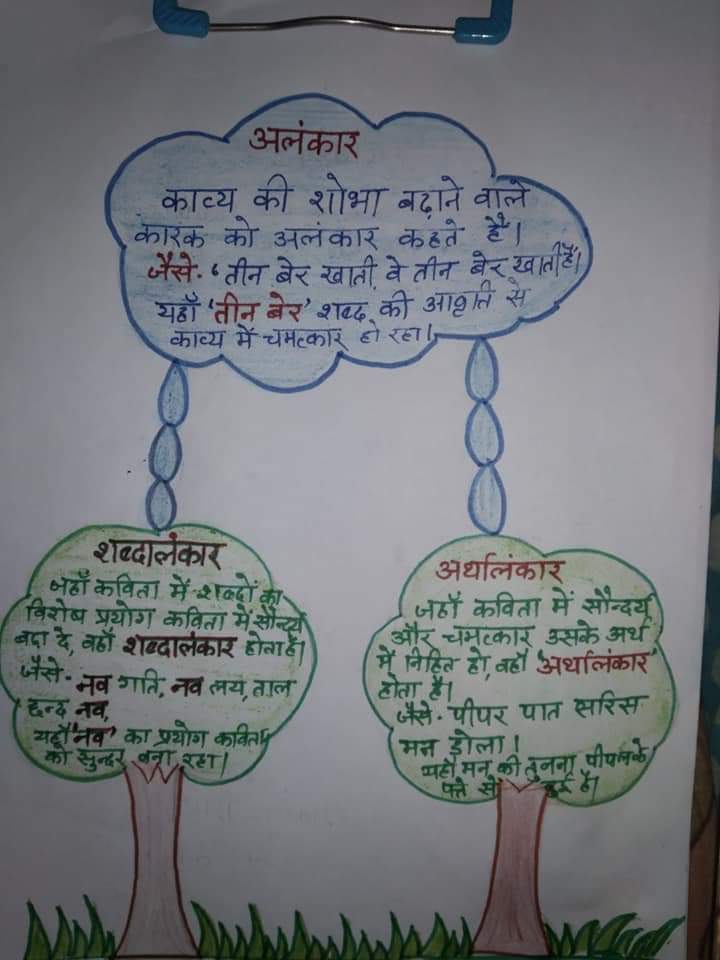 अलंकार
काव्य की शोभा बढ़ाने वाले
कारक को अलंकार कहते है।
जैसे- 'तीन बेर खाती, वे तीन बेर खाती हैं।
यहाँ 'तीन बेर' शब्द की आवृति से
काव्य में चमत्कार हो रहा।
शब्दालंकार
जहाँ कविता में शब्दों का
विशेष प्रयोग कविता में सौन्दर्य
बढा दे, वहाँ शब्दालंकार होता है।
जैसे- नव गति, नव लय, ताल
छन्द नव,
यहाँ 'नव' का प्रयोग कविता
को सुन्दर बना रहा।
अर्थालंकार
जहाँ कविता में सौन्दर्य
और चमत्कार उसके अर्थ
में निहित हो, वहाँ 'अर्थालंकार'
होता है।
जैसे- पीपर पात सरिस
मन डोला।
यहाँ मन की तुलना पीपल के
पत्ते से हुई है।